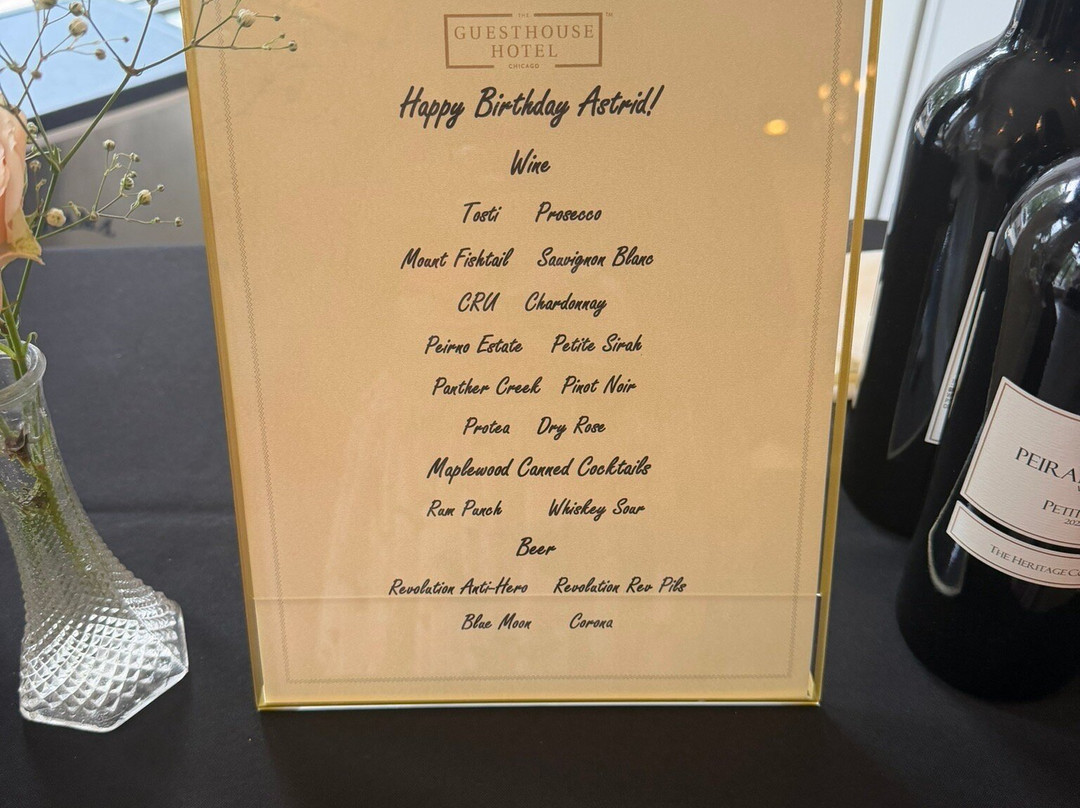 THE
GUESTHOUSE
HOTEL
CHICAGO
TM
Happy Birthday Astrid!
Wine
Tosti Prosecco
Mount Fishtail Sauvignon Blanc
CRU Chardonnay
Peirno Estate Petite Sirah
Panther Creek Pinot Noir
Protea Dry Rose
Maplewood Canned Cocktails
Rum Punch Whiskey Sour
Beer
Revolution Anti-Hero Revolution Rev Pils
Blue Moon Corona
THE HERITAGE